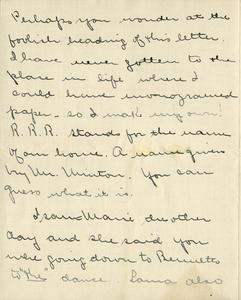 Perhaps you wonder at the
foolish heading of this letter.
I have never gotten to the
place in life where I
could have monogramed
paper - so I make my own!
R.R.R. stands for the name
of our home. A name given
by Mr. Minton. You can
guess what it is.
I saw Marie the other
day and she said you
were going down to Bennetts
to "the" dance. Laura also